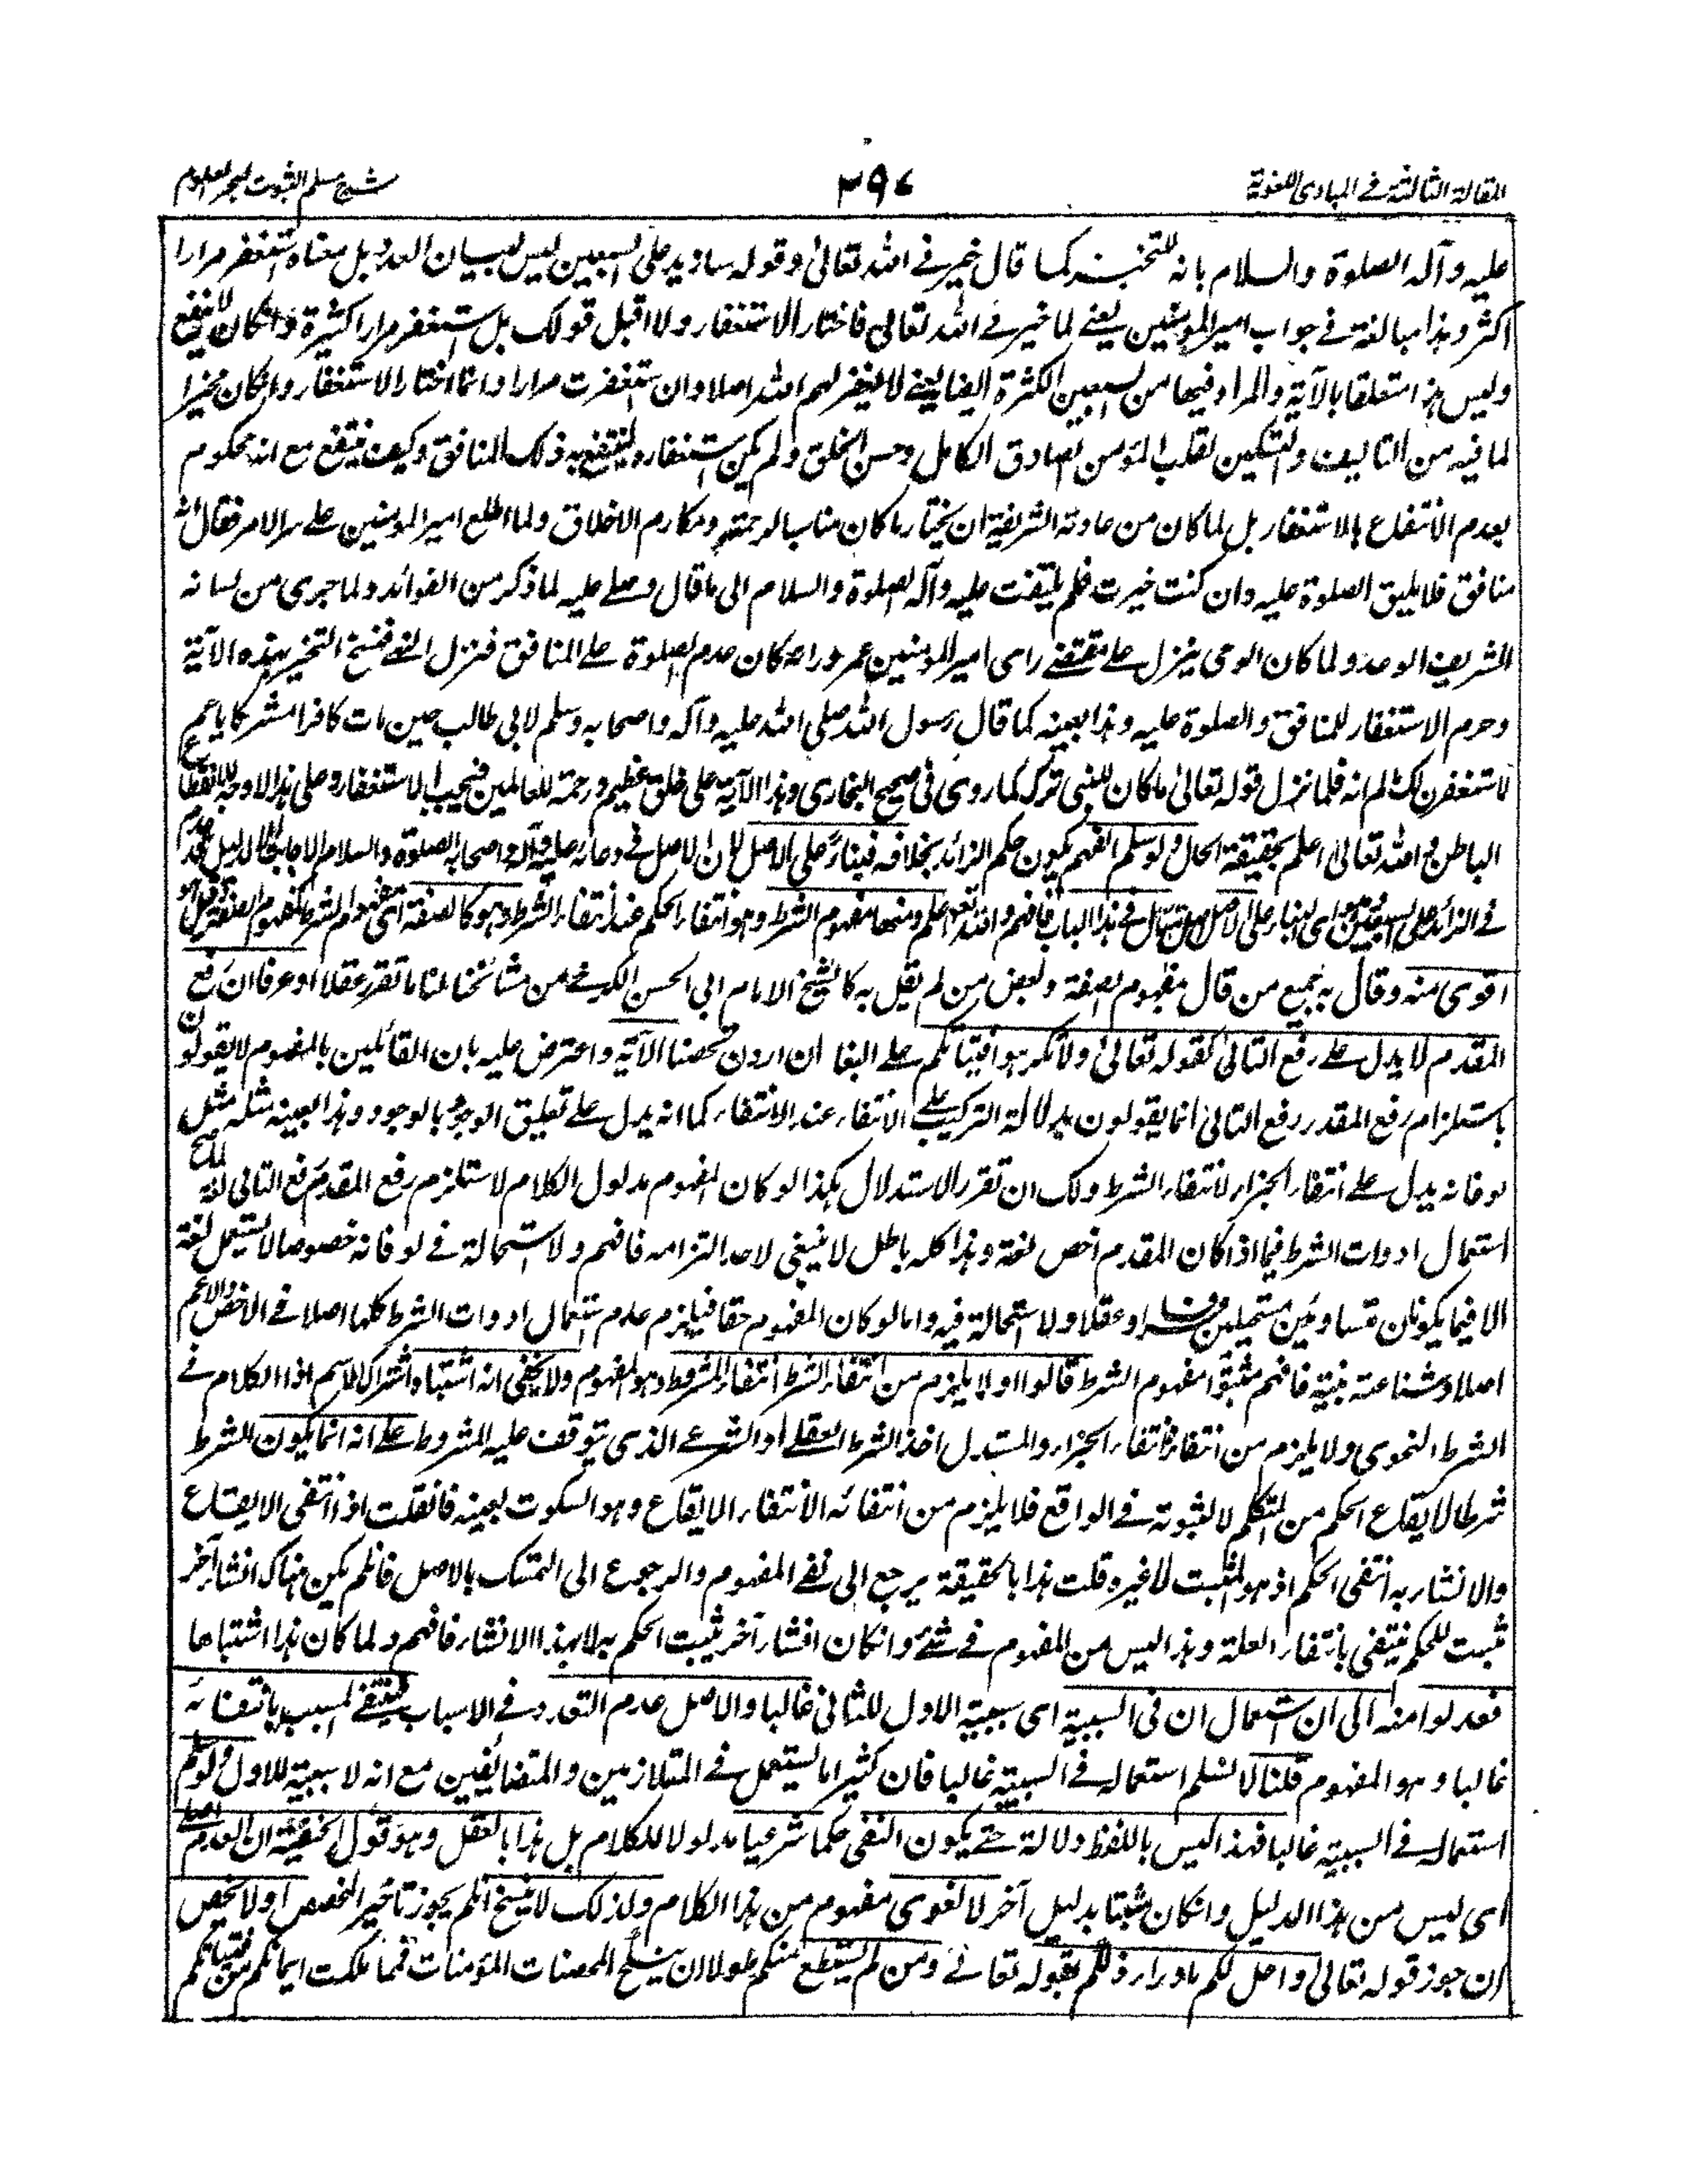 المقالة الثالثة في المبادى اللغوية
٢٩٧
شرح مسلم الثبوت لبحر العلوم
عليه وآله الصلوة والسلام بانه للتخيير كما قال خيرني الله تعالى وقوله سازيد على السبعين ليس لبيان العدد بل معناه استغفر مرارا
اكثر وهذا مبالغة في جواب امير المؤمنين يعني لما خيرني الله تعالى فاختار الاستغفار ولا اقبل قولك بل استغفر مرارا كثيرة وانكان لا ينفع
وليس هذا متعلقا بالآية والمراد فيها من السبعين الكثرة ايضا يعني لا يغفر لهم الله اصلا وان استغفرت مرارا وانما اختار الاستغفار وانكان مخيرا
لما فيه من التاليف والتسكين لقلب المؤمن الصادق الكامل وحسن الخلق ولم يكن استغفاره لينتفع به ذلك المنافق وكيف ينتفع مع انه محكوم
بعدم الانتفاع بالاستغفار بل لما كان من عادته الشريفة ان يختار ما كان مناسبا لرحمته ومكارم الاخلاق ولما اطلع امير المومنين على سر الامر فقال انه
منافق فلا يليق الصلوة عليه وان كنت خيرت فلم يلتفت عليه وآله الصلوة والسلام الى ما قال وصلى عليه لما ذكر من الفوائد ولما جرى من لسانه
الشريف الوعد ولما كان الوحى ينزل على مقتضى راى امير المومنين عمر وراه كان عدم الصلوة على المنافق فنزل النهى فنسخ التخيير بهذه الآية
وحرم الاستغفار للمنافق والصلوة عليه وهذا بعينه كما قال رسول الله صلى الله عليه وآله واصحابه وسلم لابي طالب حين مات كافرا مشركا يا عم
لاستغفرن لك لم انه فلما نزل قوله تعالى ما كان للنبي ترك كما روى في صحيح البخارى وهذا الآية على خلق عظيم ورحمة للعالمين فيجب الاستغفار وعلى هذا لا وجه للانقطاع
الباطن والله تعالى اعلم بحقيقة الحال ولو سلم الفهم يكون حكم الزائد بخلافه فبناء على الاصل لان الاصل في دعائه عليه وآله واصحابه الصلوة والسلام الاجابة
في الزائد على السبعين فبقي اى البناء على الاصل في هذا الباب فافهم والله تعالى اعلم ومنها مفهوم الشرط وهو انتفاء الحكم عند انتفاء الشرط وهو كالصفة اى مفهوم الشرط كمفهوم الصفة وقيل هو
اقوى منه وقال به جميع من قال بمفهوم الصفة وبعض من لم يقل به كالشيخ الامام ابي الحسن الكرخي من مشائخنا لنا ما تقرر عقلا او عرفا ان رفع
المقدم لا يدل على رفع التالى كقوله تعالى ولا تكرهوا فتياتكم على البغاء ان اردن تحصنا الآية واعترض عليه بان القائلين بالمفهوم لا يقولون
باستلزام رفع المقدم رفع التالى انما يقولون بدلالة التركيب على الانتفاء عند الانتفاء كما انه يدل على تعليق الوجود بالوجود وهذا بعينه مثله مثل
لو فانه يدل على انتفاء الجزاء لانتفاء الشرط ولك ان تقرر الاستدلال بكذا لو كان المفهوم مدلول الكلام لاستلزم رفع المقدم رفع التالى لغة لما صح
استعمال ادوات الشرط فيما اذا كان المقدم اخص لغة وهذا كله باطل لا ينبغى لاحد التزامه فافهم ولا استحالة في لو فانه خصوصا لا يستعمل لغة
الا فيما يكونان متساويين مستحيلين عرفا او عقلا ولا استحالة فيه واما لو كان المفهوم حقا فيلزم عدم استعمال ادوات الشرط كلها اصلا في الاخص والاعم
اصلا وشناعته بينة فافهم مثبتوا مفهوم الشرط قالوا اولا يلزم من انتفاء الشرط انتفاء المشروط وهو المفهوم ولا يخفى انه اشتباه اشتراك الاسم اذ الكلام في
الشرط النحوى ولا يلزم من انتفائه انتفاء الجزاء والمستدل اخذ الشرط العقلى او الشرعى الذى يتوقف عليه المشروط على انه انما يكون الشرط
شرطا لايقاع الحكم من المتكلم لا لثبوته في الواقع فلا يلزم من انتفائه الا انتفاء الايقاع وهو السكوت بعينه فان قلت اذا انتفى الايقاع
والانشاء به انتفى الحكم اذ هو المثبت لا غيره قلت هذا بالحقيقة يرجع الى نفى المفهوم والرجوع الى التمسك بالاصل فان لم يكن هناك انشاء آخر
مثبت للحكم ينتفى بانتفاء العلة وهذا ليس من المفهوم في شئ وانكان انشاء آخر يثبت الحكم به لا بهذا الانشاء فافهم ولما كان هذا اشتباها
فعدلوا منه الى ان استعمال ان في السببية اى سببية الاول للثانى غالبا والاصل عدم التعدد في الاسباب فينتفى المسبب بانتفائه
غالبا وهو المفهوم قلنا لا نسلم استعماله في السببية غالبا فان كثيرا ما يستعمل في المتلازمين والمتضايفين مع انه لا سببية للاول ولو سلم
استعماله في السببية غالبا فهذا ليس باللفظ دلالة حتى يكون النفى حكما شرعيا مدلولا للكلام بل هذا بالعقل وهو قول الحنفية ان العدم اصلى
اى ليس من هذا الدليل وانكان مثبتا بدليل آخر لا لغوى مفهوم من هذا الكلام ولذلك لا ينسخ ان لم يجوز تاخير المخصص او لا يخص
ان جوز قوله تعالى واحل لكم ما وراء ذلكم بقوله تعالى ومن لم يستطع منكم طولا ان ينكح المحصنات المؤمنات فمما ملكت ايمانكم من فتياتكم